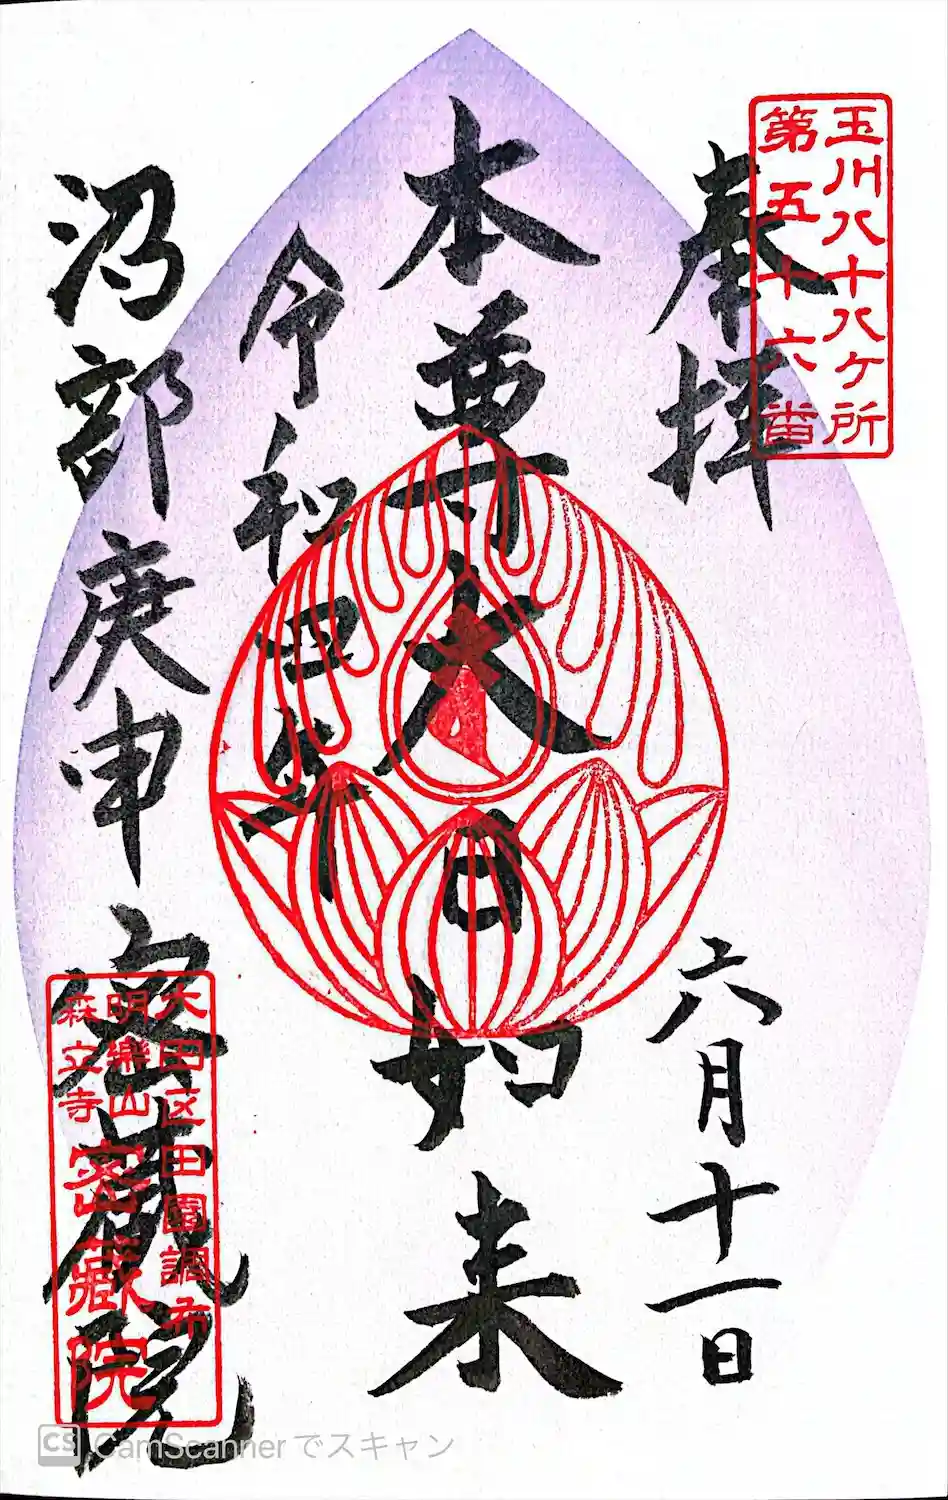 玉川八十八ケ所
第五十六番
奉拝
六月十一日
本尊大日如来
令和四年
沼部庚申
密蔵院
大田区田園調布
明樂山
森立寺
密藏院
CS CamScanner でスキャン